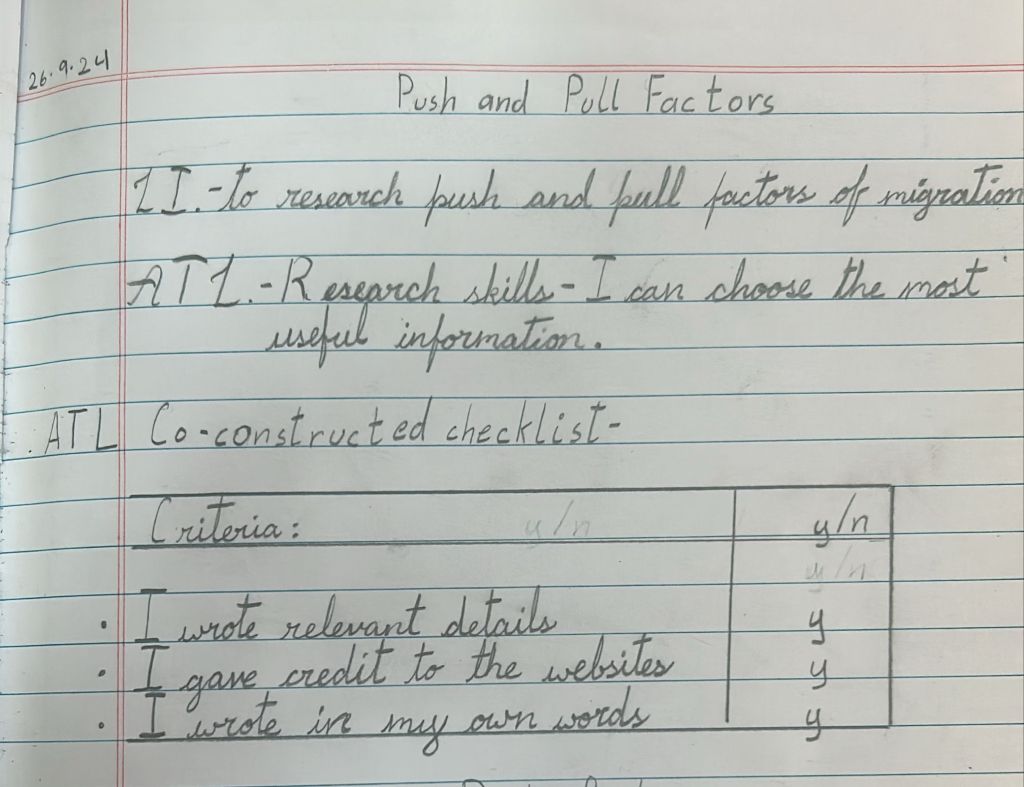 26.9.24
Push and Pull Factors
LI.-to research push and pull factors of migration
ATL.-Research skills-I can choose the most
useful information.
ATL Co-constructed checklist-
Criteria: y/n y/n
y/n
• I wrote relevant details y
• I gave credit to the websites y
• I wrote in my own words y